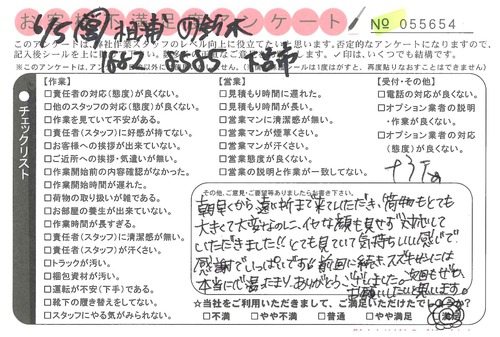 お客様満足アンケート
No 055654
このアンケートは弊社作業スタッフのレベル向上に役立てたいと思います。否定的なアンケートになりますので、
チェックリスト
【作業】
□責任者の対応(態度)が良くない。
□他のスタッフの対応(態度)が良くない。
□作業を見ていて不安がある。
□責任者(スタッフ)に好感が持てない。
□お客様への挨拶が出来ていない。
□ご近所への挨拶・気遣いが無い。
□作業開始前の内容確認がなかった。
□作業開始時間が遅れた。
□荷物の取り扱いが雑である。
□お部屋の養生が出来ていない。
□作業時間が長すぎる。
□責任者(スタッフ)に清潔感が無い。
□責任者(スタッフ)が汗くさい。
□トラックが汚い。
□梱包資材が汚い。
□運転が不安(下手)である。
□靴下の履き替えをしてない。
□スタッフにやる気がみられない。
【営業】
□見積もり時間に遅れた。
□見積もり時間が長い。
□営業マンに清潔感が無い。
□営業マンが煙草くさい。
□営業マンが汗くさい。
□営業態度が良くない。
□営業の説明と作業が一致してない。
【受付・その他】
□電話の対応が良くない。
□オプション業者の説明
・作業が良くない。
□オプション業者の対応
(態度)が良くない。
その他、ご意見・ご要望等ありましたらお書き下さい。
朝早くから遠い所まで来ていただき、荷物もとても
大きくて大変なのに、イヤな顔も見せず対応して
いただきました!!とても見ていて気持ちいい感じで、
感謝でいっぱいです!!前回に続き、スズキさんには
本当にお世話になり、ありがとうございました。次回もぜひ
お願いしたいと思います。
☆当社をご利用いただきまして、ご満足いただけたでしょうか?
□不満 □やや不満 □普通 □やや満足 □満足